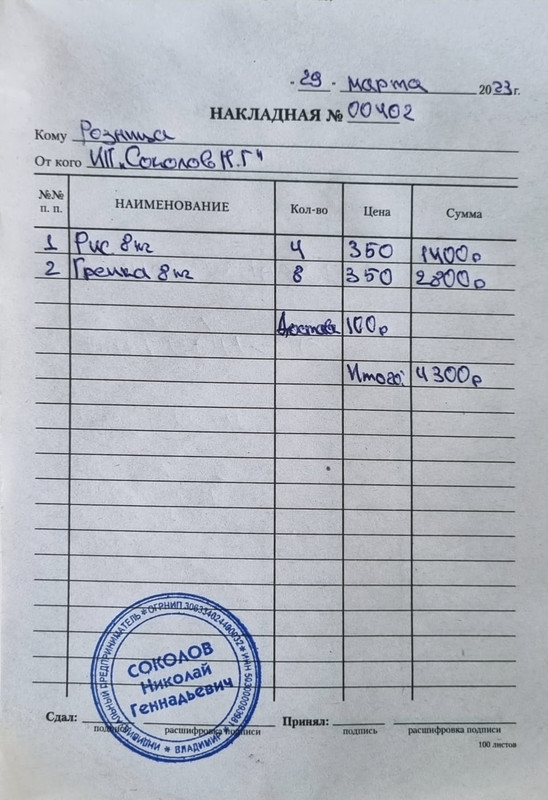 " 29 " марта 2023 г.
НАКЛАДНАЯ № 00402
Кому Розница
От кого ИП „Соколов Н.Г"
№№ п. п. НАИМЕНОВАНИЕ Кол-во Цена Сумма
1 Рис 8 кг 4 350 1400р
2 Гречка 8 кг 8 350 2800р
Доставка 100р
Итого: 4300р
СОКОЛОВ
Николай
Геннадьевич
ИНДИВИДУАЛЬНЫЙ ПРЕДПРИНИМАТЕЛЬ * ОГРНИП * ИНН * ВЛАДИМИР *
Сдал: Принял:
подпись расшифровка подписи подпись расшифровка подписи
100 листов